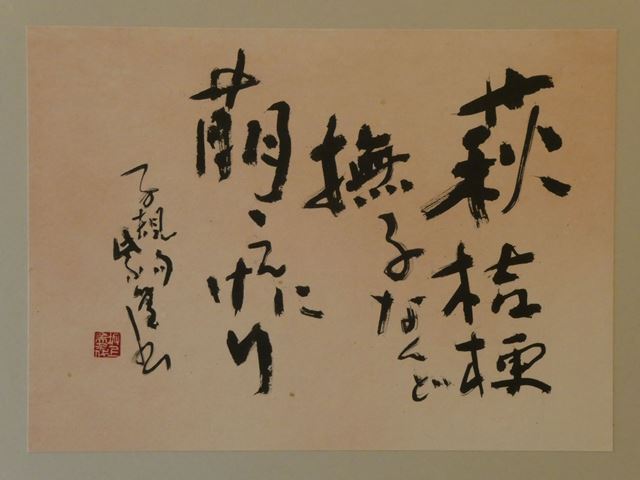 萩桔梗
撫子なんど
萌えにけり
子規句 書